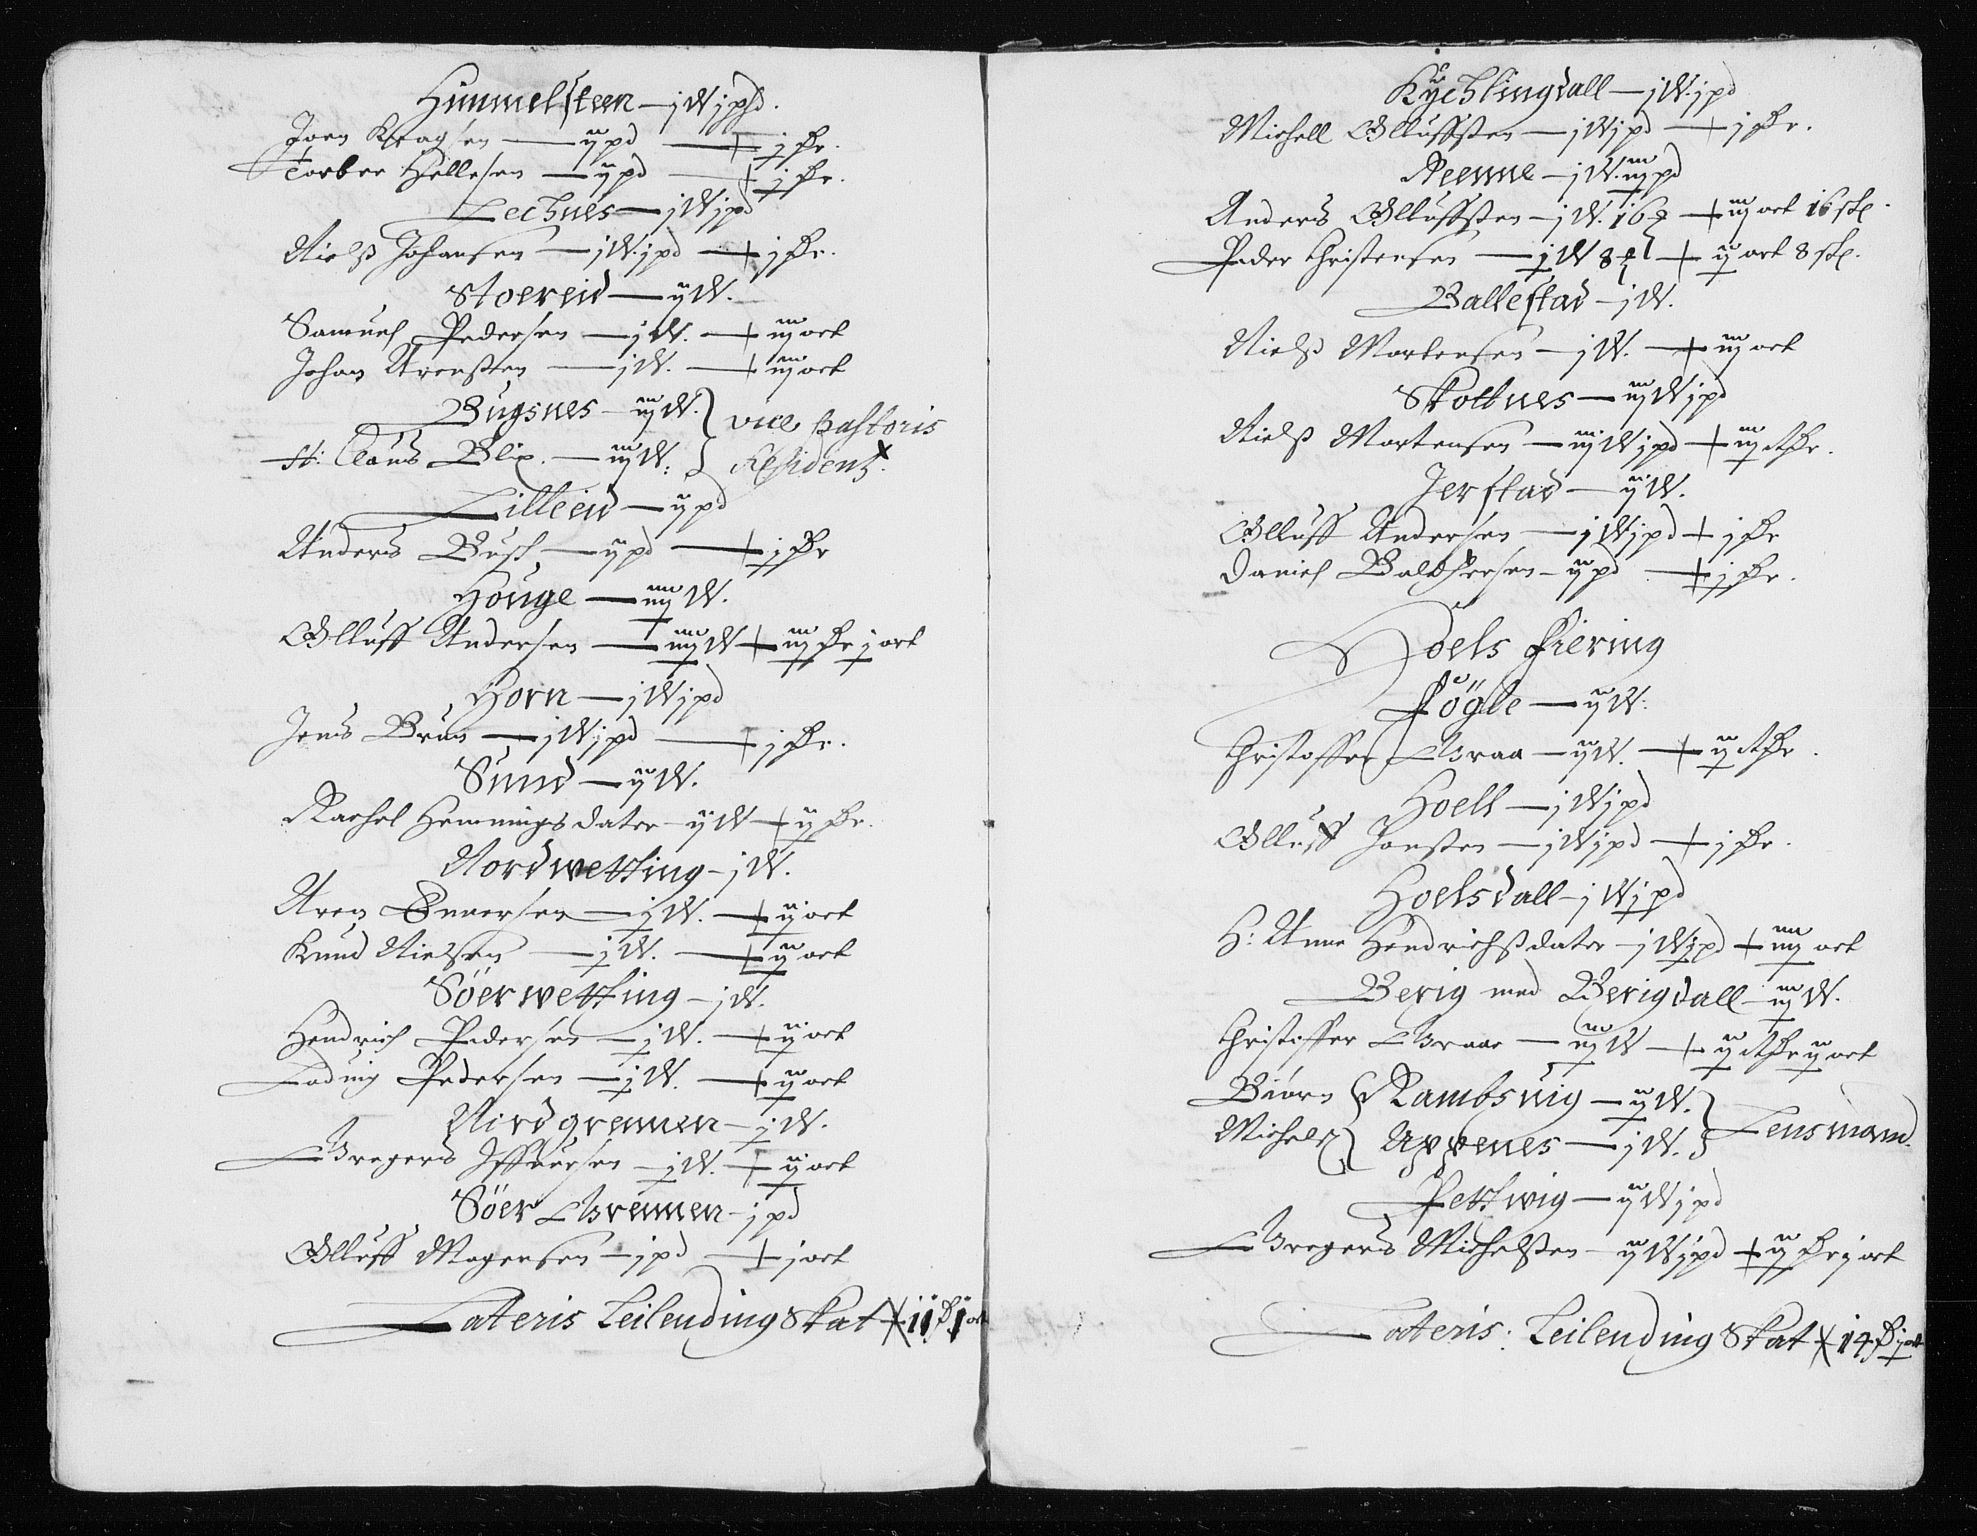 Himmelsteen — j W j pd.
Joen Kragsen — ij pd — j ſtr.
Torber Hellesen — ij pd — j ſtr.
Lechnes — j W j pd
Nielß Johansen — j W j pd — j ſtr.
Stoereid — ij W.
Samuel Pedersen — j W. — iij ort
Johan Arenßen — j W. — iij ort
Bugsnes — iij W. vice pastoris
H: Claus Blix. — iij W: Residentz.
Lilleeid — ij pd
Anders Busch — ij pd — j ſtr
Houge — iiij W.
Olluff Andersen — iiij W — iij ſtr j ort
Horn — j W j pd
Jens Brun — j W j pd — j ſtr.
Sund — ij W.
Rachel Hemmingsdater — ij W — ij ſtr.
Nordwetting — j W.
Aren Enersen — j W. — ij ort
Knud Nielsen — j W. — ij ort
Söerwetting — j W.
Hendrich Pedersen — j W. — ij ort
Loduig Pedersen — j W. — ij ort
Nirdgremen — j W.
Gregers Iffuersen — j W. — ij ort
Söer Gremen — j pd
Olluff Mogensen — j pd — j ort
Lateris Leilending Skat 11 ſtr 1 ort
Kychlingdall — j W j pd
Michell Olluffßen — j W j pd — j ſtr.
Reenne — j W. iij pd
Anders Olluffßen — j W. 16 — iij ort 16 sk.
Peder Christensen — j W 8 — ij ort 8 sk.
Ballestad — j W.
Nielß Mortensen — j W. — iij ort
Skottnes — iij W j pd
Nielß Mortensen — iij W j pd — iij ſtr.
Jerstad — ij W.
Olluff Andersen — j W j pd — j ſtr
Daniel Baltzersen — ij pd — j ſtr.
Hoels Fiering
Fögle — ij W.
Christoffer Graa — ij W. — ij ſtr.
Hoell — j W j pd
Olluff Jonßen — j W j pd — j ſtr.
Hoelsdall — j W j pd
H: Anne Hendrichßdater — j W j pd — iiij ort
Berig med Berigdall — iij W.
Christoffer Graae — iij W — ij ſtr ij ort
Biörn Rambsuig — ij W.
Michel Uppenes — j W. Lensmand.
Pettwig — ij W j pd
Gregers Michelßen — ij W j pd — ij ſtr j ort
Lateris: Leilending Skat 14 ſtr j ort